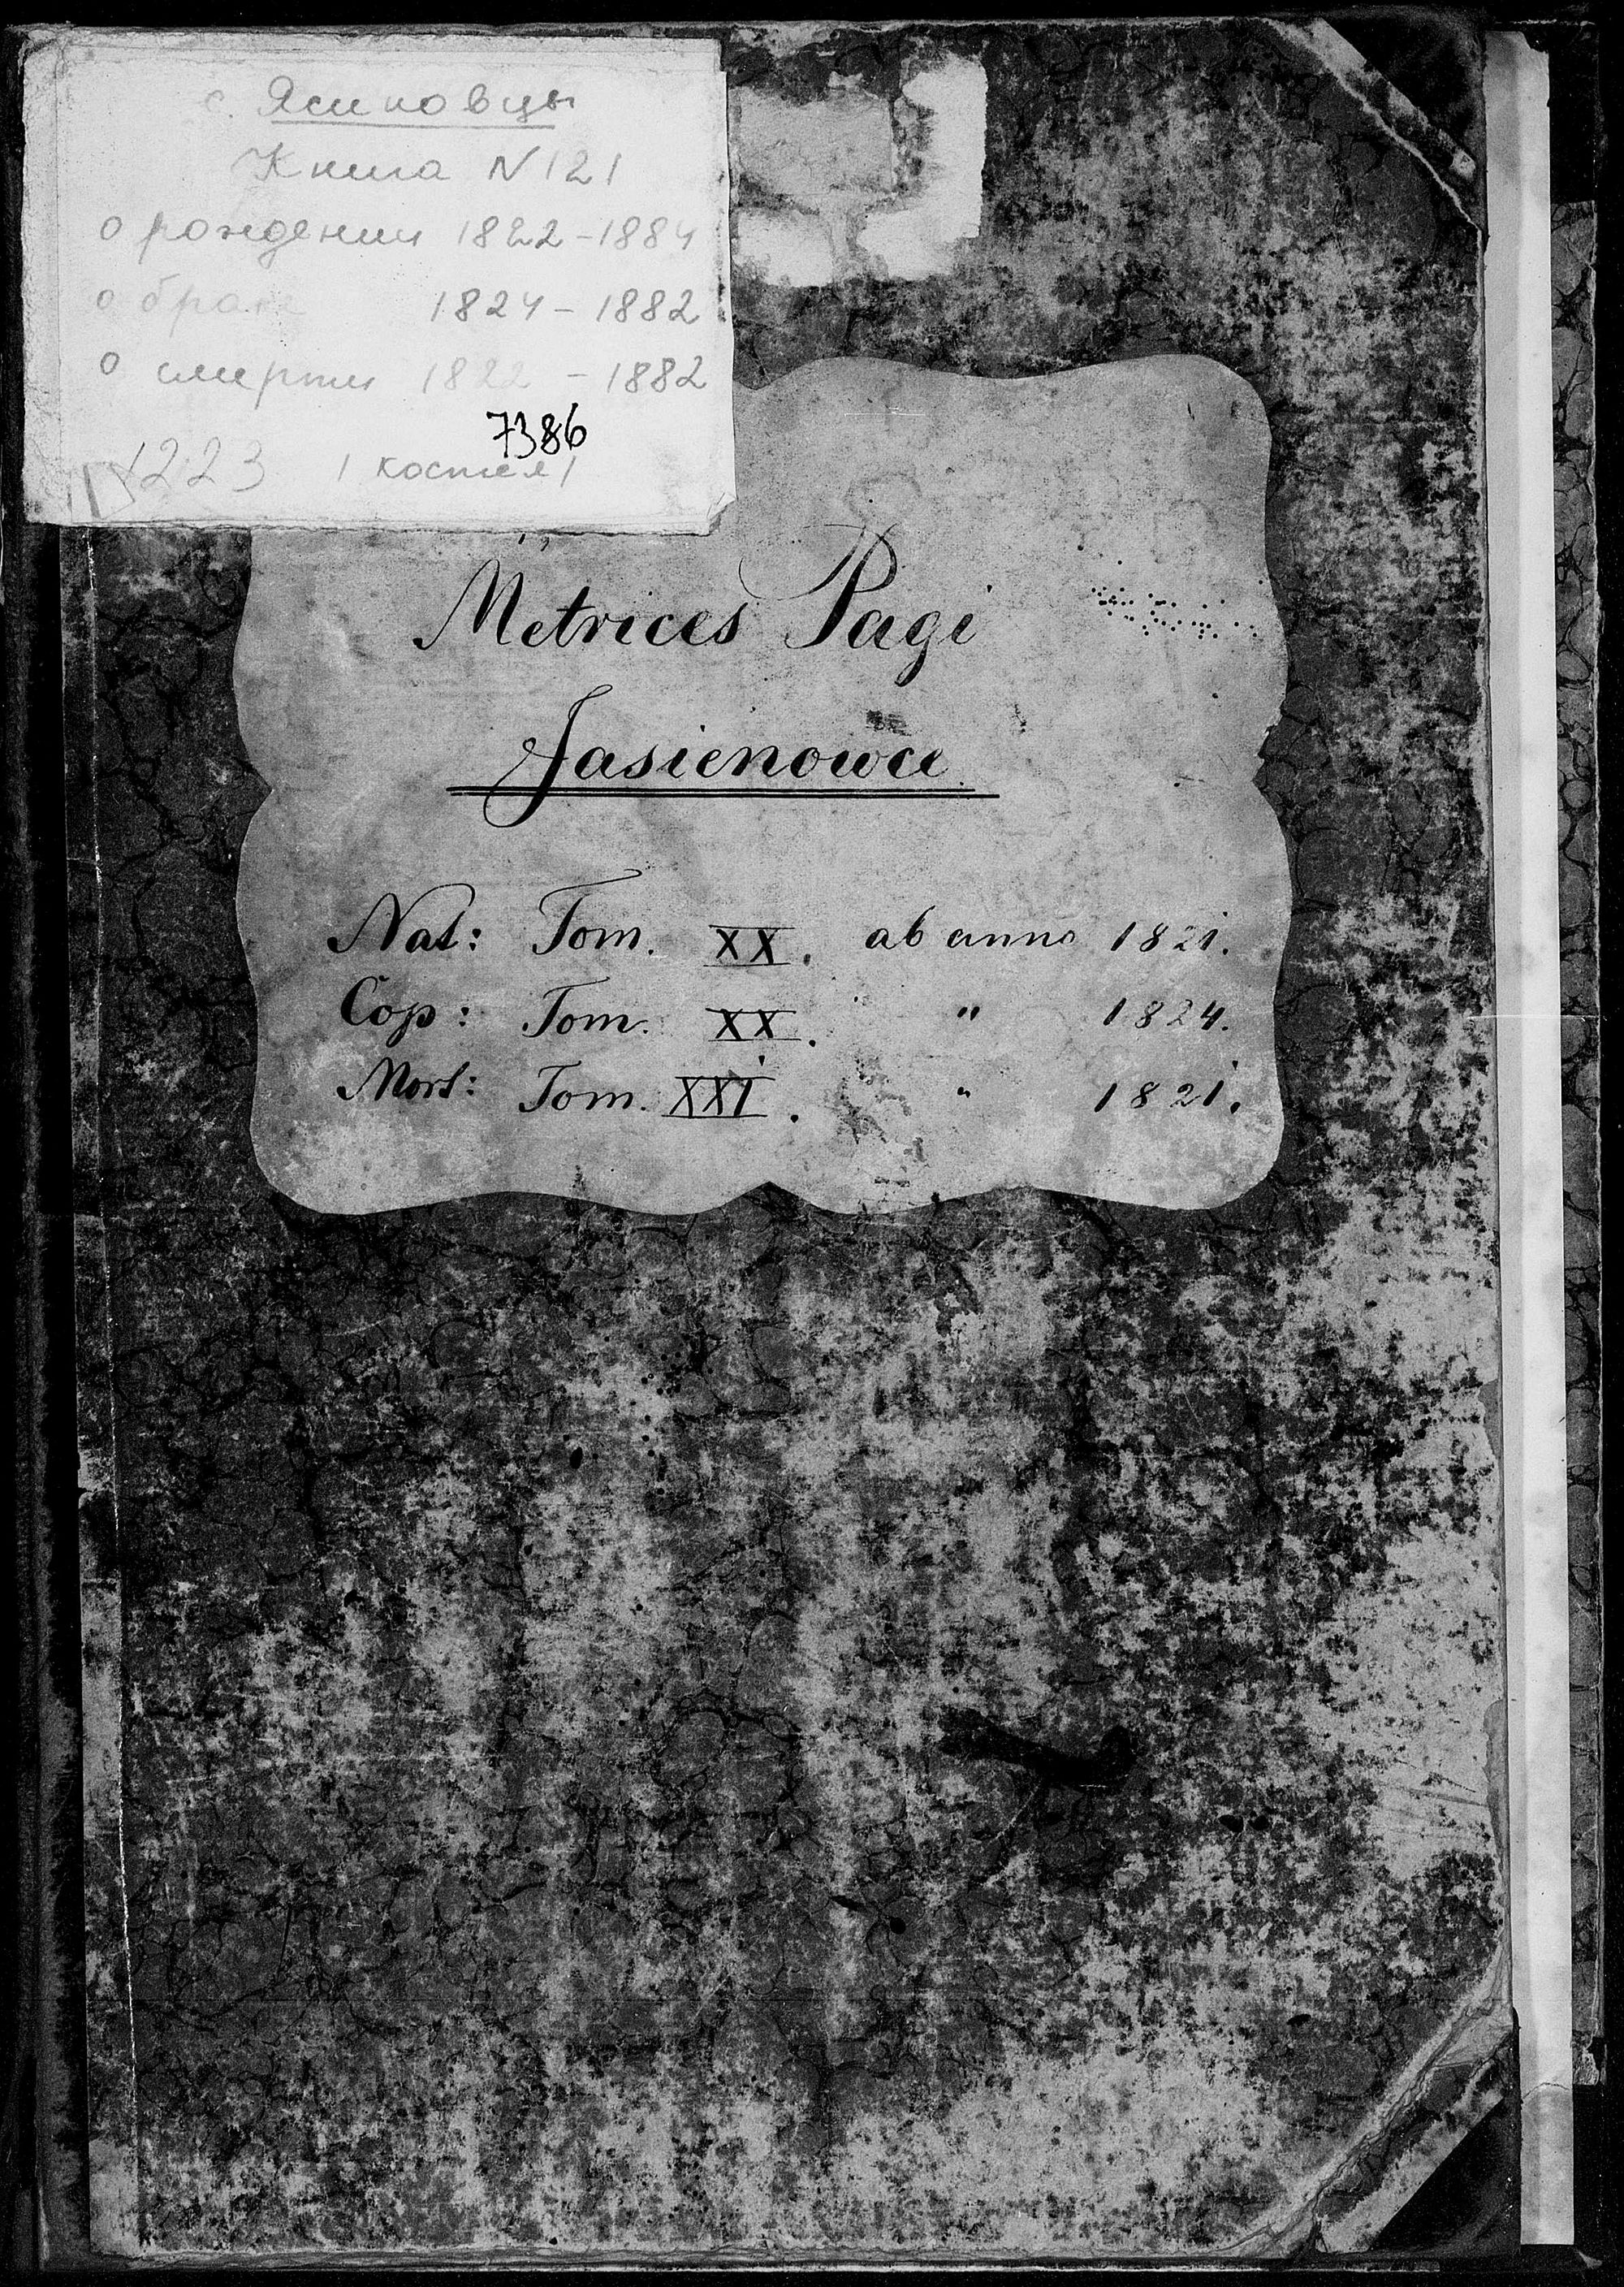 с. Ясиновцы
Книга N 121
о рождении 1822-1884
о браке 1824-1882
о смерти 1822-1882
7386
1223 / костел /
Metrices Pagi
Jasienowce
Nat: Tom. XX. ab anno 1821.
Cop: Tom. XX. " 1824.
Mort: Tom. XXI. " 1821.